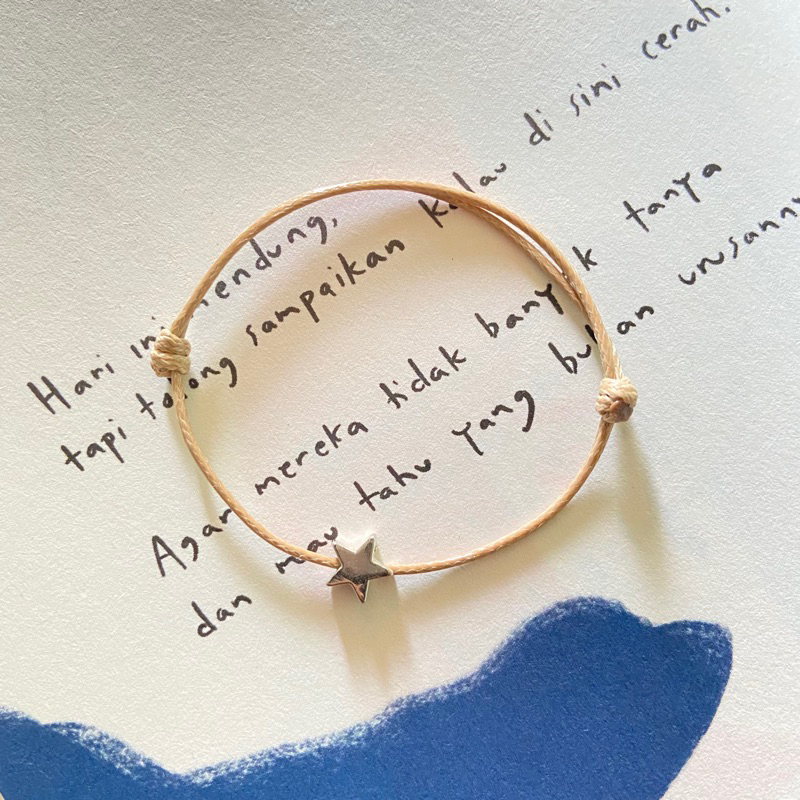 Hari ini mendung,
tapi tolong sampaikan kalau di sini cerah.
Agar mereka tidak banyak tanya
dan mau tahu yang bukan urusanny